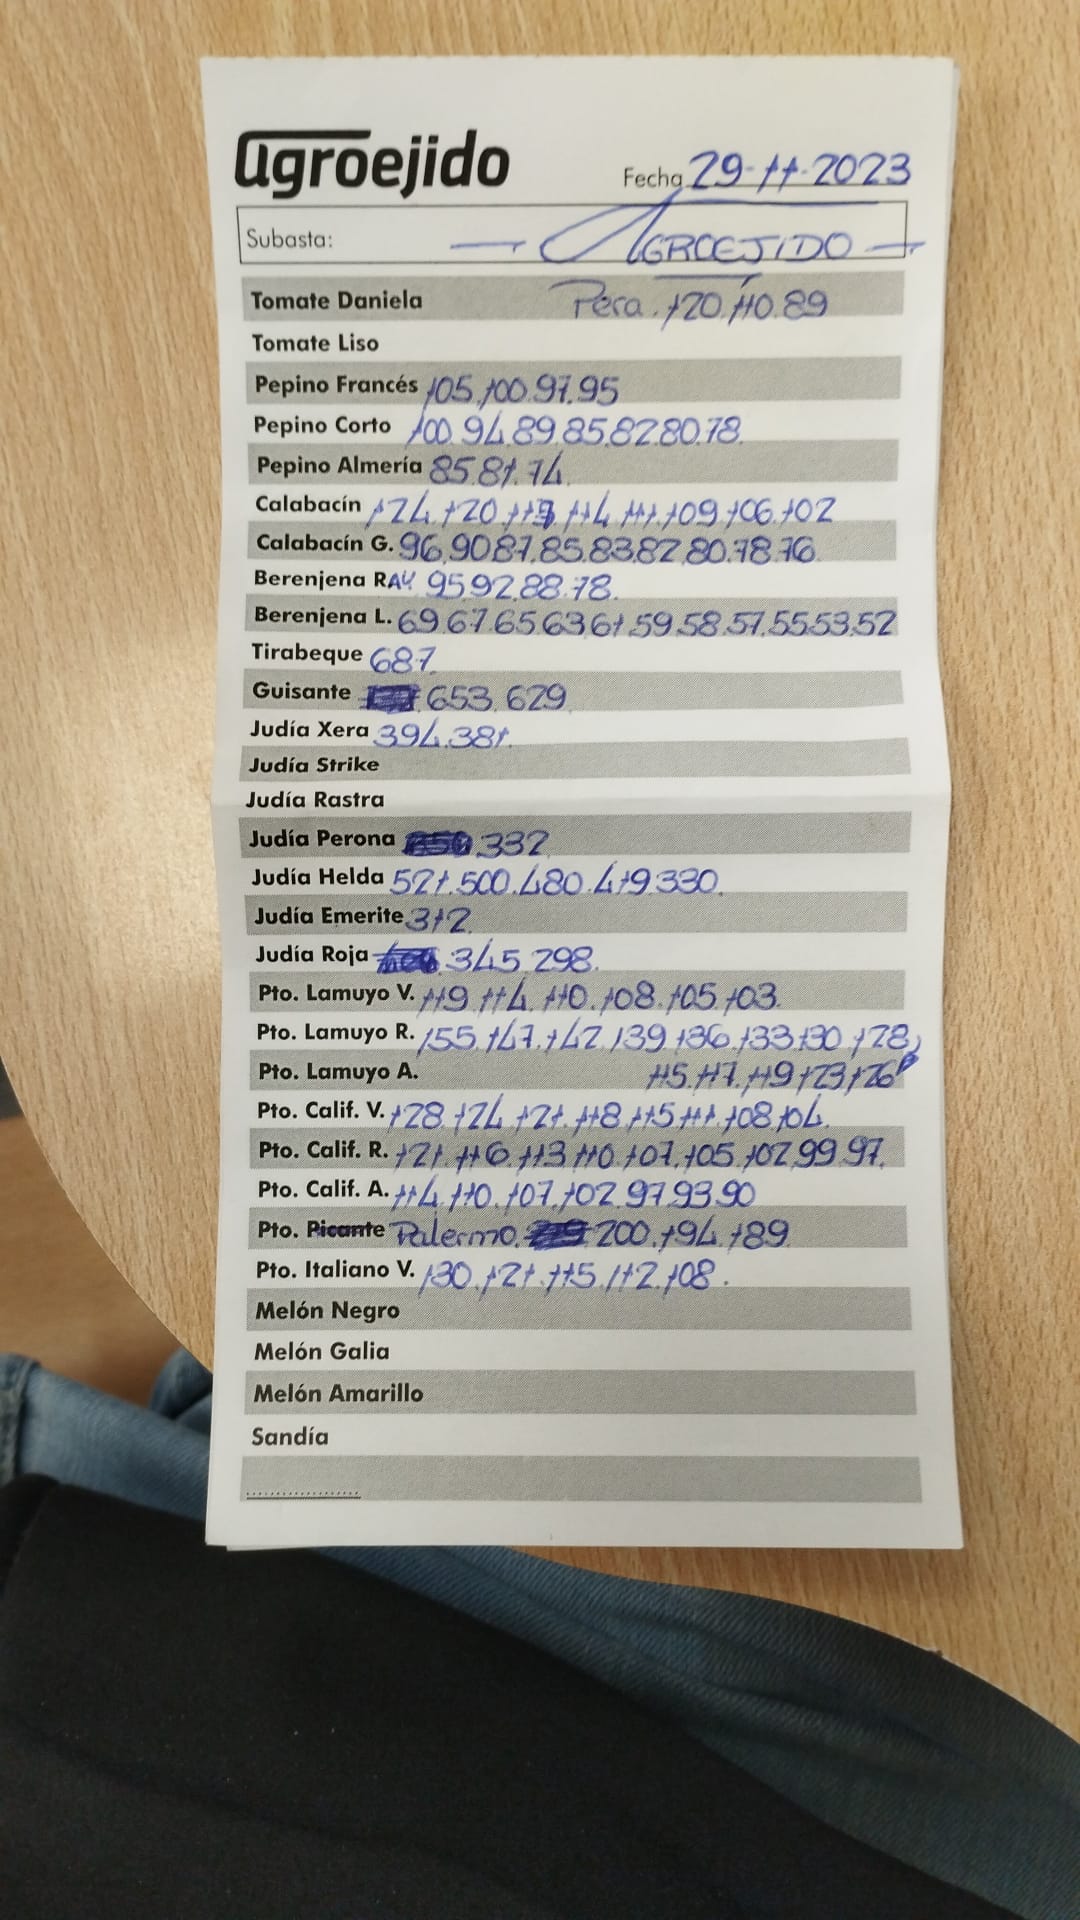 agroejido
Fecha 29-11-2023
Subasta: AGROEJIDO
Tomate Daniela Pera. 120.110.89
Tomate Liso
Pepino Francés 105.100.97.95
Pepino Corto 100.94.89.85.82.80.78.
Pepino Almería 85.81.74.
Calabacín 124.120 114 111.109 106.102
Calabacín G. 96.90 87.85.83.82.80.78.76.
Berenjena RAY. 95.92.88.78.
Berenjena L. 69.67.65.63.61.59.58.57.55.53.52
Tirabeque 687.
Guisante 653.629
Judía Xera 394.381.
Judía Strike
Judía Rastra
Judía Perona 332
Judía Helda 521.500.480.419.330.
Judía Emerite 312
Judía Roja 345.298.
Pto. Lamuyo V. 119.114.110.108.105.103.
Pto. Lamuyo R. 155.147.142.139.136.133.130.128
Pto. Lamuyo A. 115.117.119.123.126
Pto. Calif. V. 128.124.121.118.115.111.108.104.
Pto. Calif. R. 121.116.113.110.107.105.102.99.97.
Pto. Calif. A. 114.110.107.102.97.93.90
Pto. Picante Palermo. 200.194.189
Pto. Italiano V. 130.121.115.112.108.
Melón Negro
Melón Galia
Melón Amarillo
Sandía